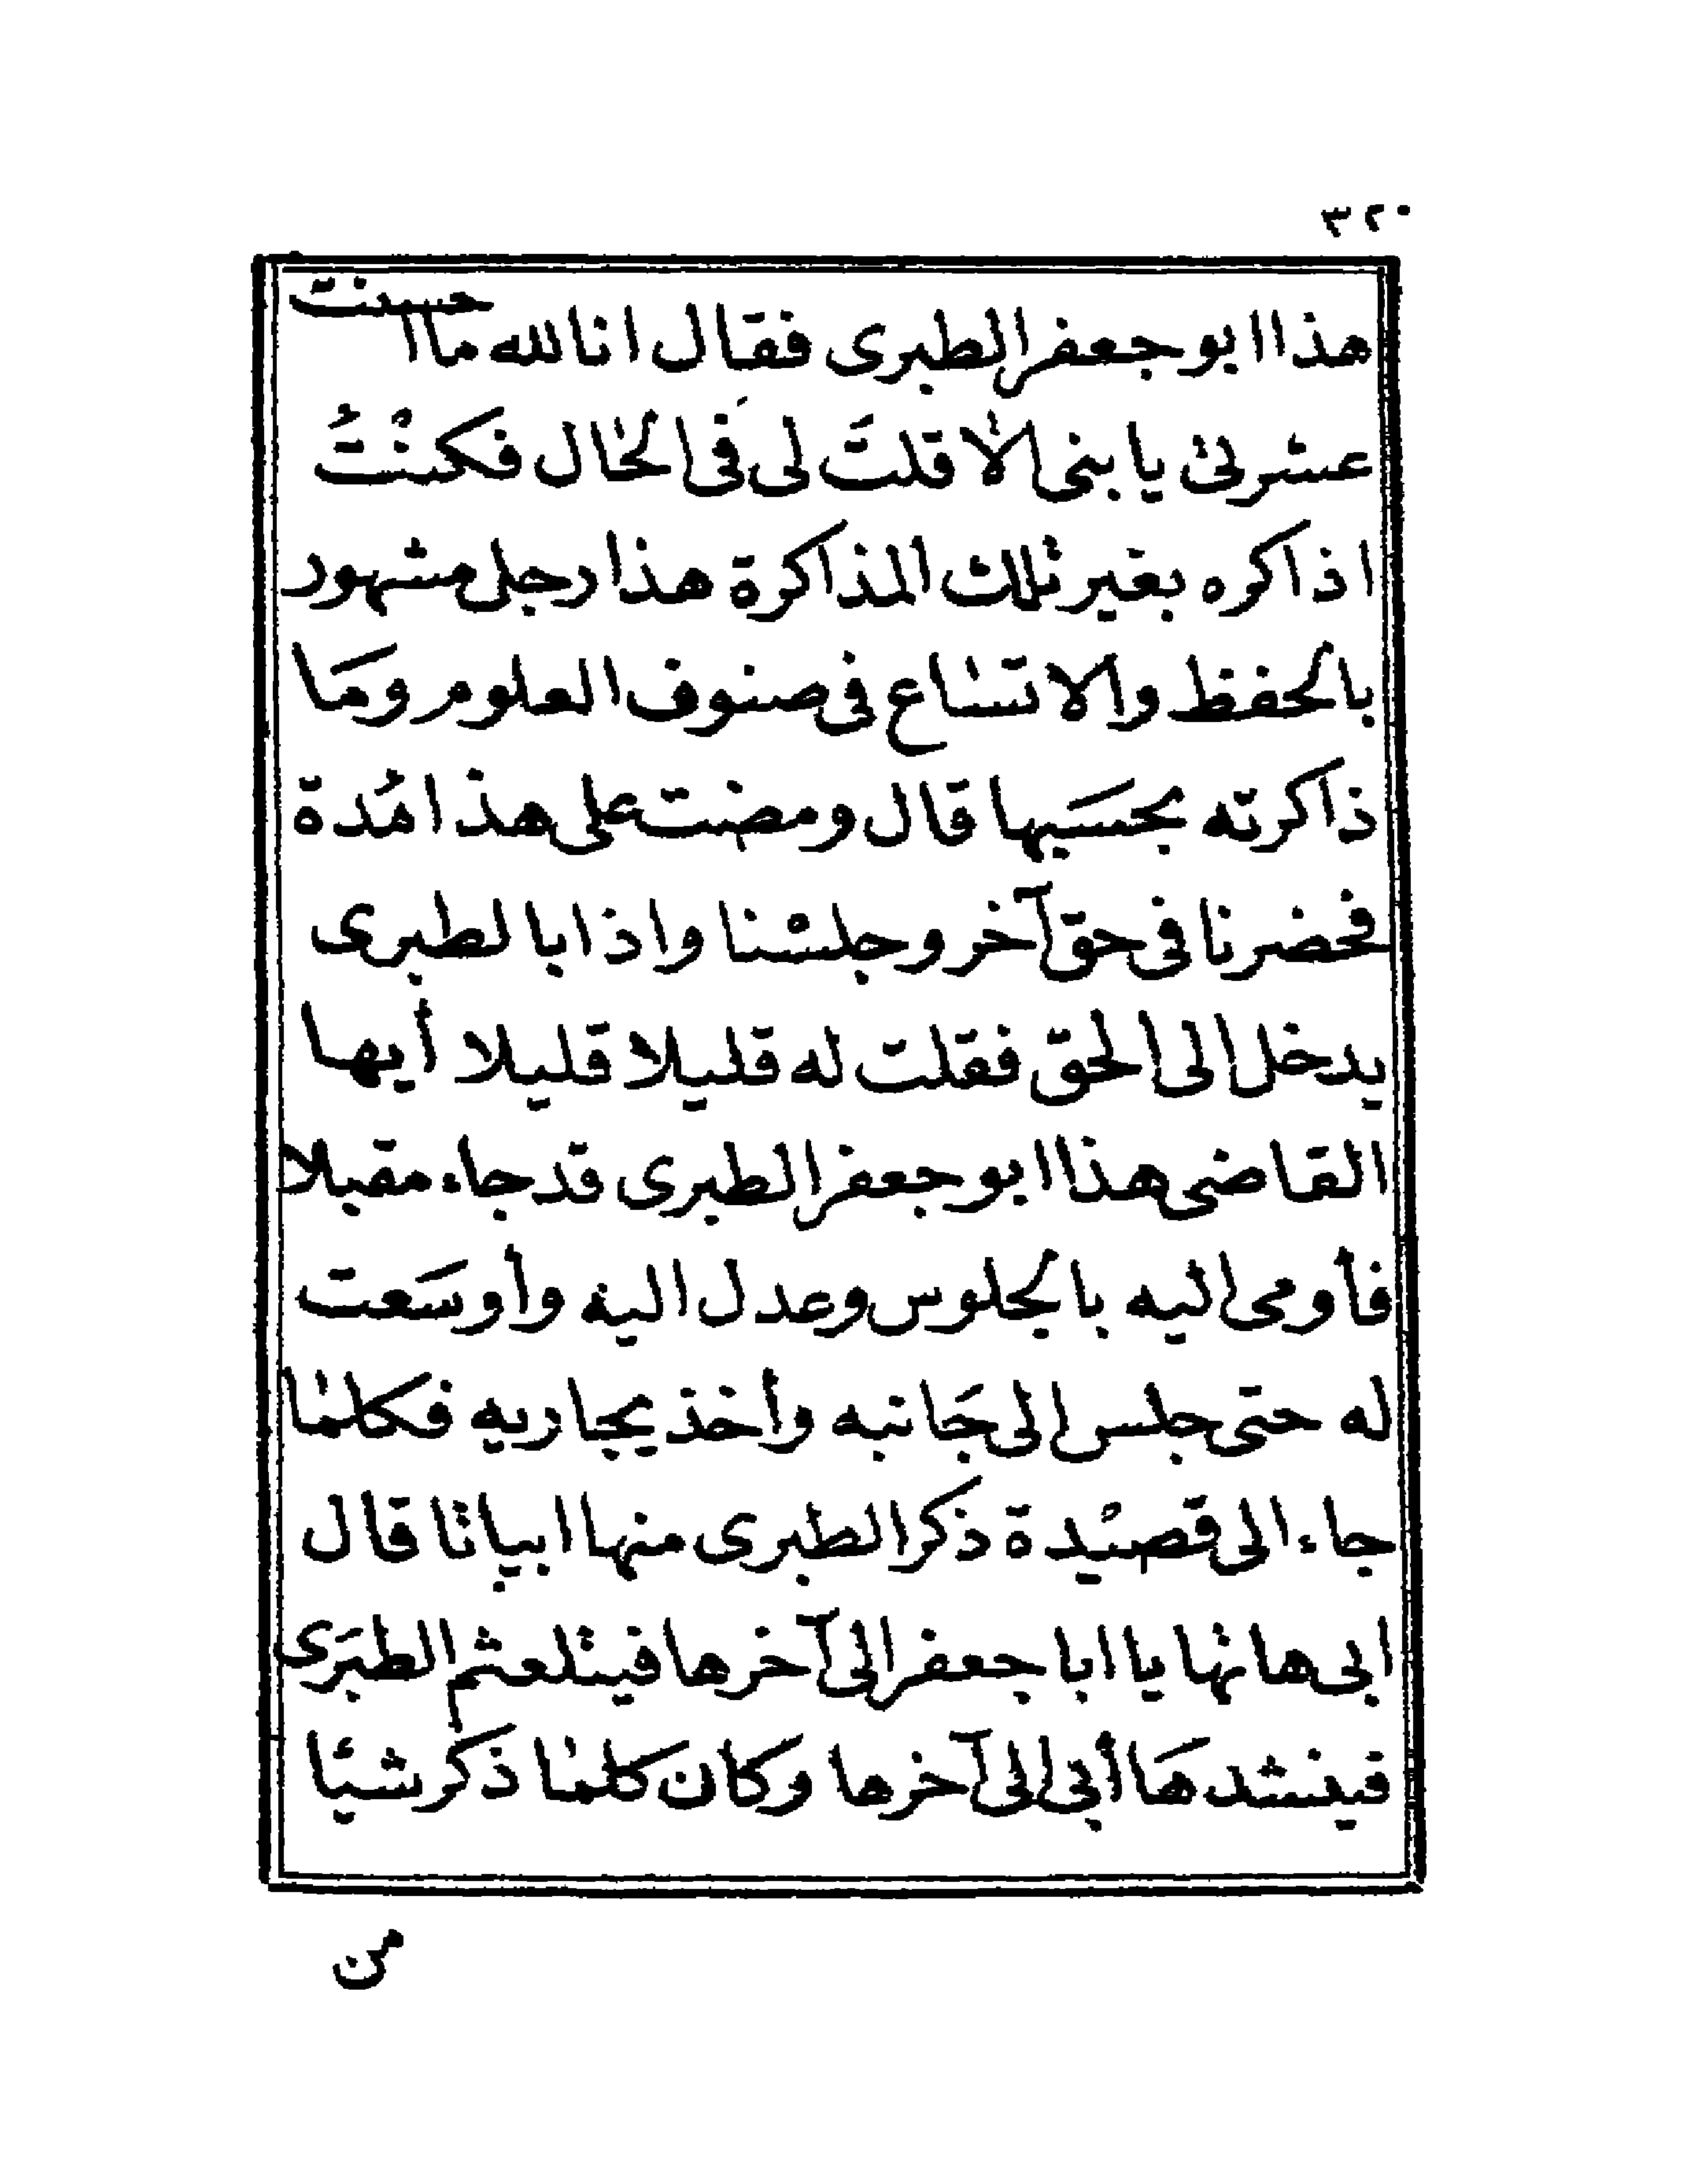 ٣٢٠
هذا ابو جعفر الطبرى فقال انا لله ما احسنت
عشرتى يا بنى الا قلتَ لى فى الحال فكنْتُ
اذاكره بغير تلك المذاكرة هذا رجل مشهور
بالحفظ والاتساع فى صنوف العلوم ومَا
ذاكرته بحسَبها قال ومضت على هذا مُدة
فحضرنا فى حق آخر وجلسنا واذا بالطبرى
يدخل الى الحق فقلت له قليلا قليلا أيها
القاضى هذا ابو جعفر الطبرى قد جاء مقبلا
فأومى اليه بالجلوس وعدل اليه وأوسَعت
له حتى جلس الى جَانبه وأخذ يجاريه فكلما
جاء الى قصيْدة ذكر الطبرى منها ابياتا قال
ابى هاتها يا ابا جعفر الى آخرها فيتلعثم الطبَرى
فينشدهَا أبى الى آخرها وكان كلما ذكر شيئا
من